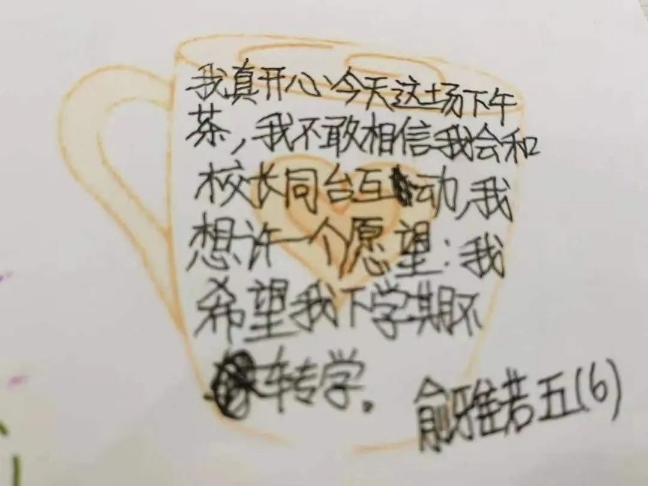 我真开心今天这场下午
茶，我不敢相信我会和
校长同台互动，我
想许一个愿望：我
希望我下学期不
转学。
俞雅若五(6)